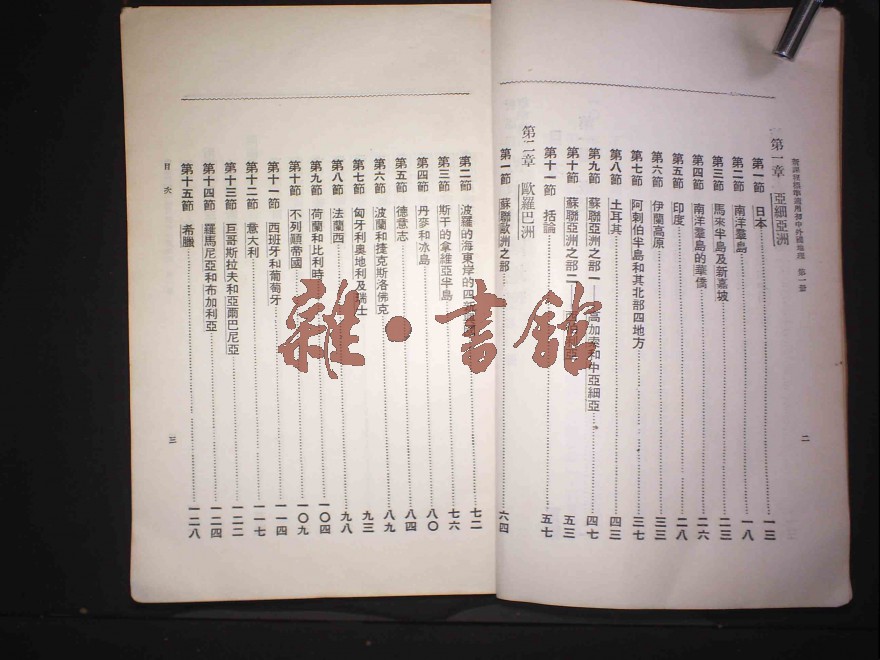 第一章 亞細亞洲
第一節 日本 一三
第二節 南洋羣島 一八
第三節 馬來半島及新嘉坡 二三
第四節 南洋羣島的華僑 二六
第五節 印度 二八
第六節 伊蘭高原 三三
第七節 阿剌伯半島和其北部四地方 三七
第八節 土耳其 四三
第九節 蘇聯亞洲之部一——高加索和中亞細亞 四七
第十節 蘇聯亞洲之部二 五三
第十一節 括論 五七
第二章 歐羅巴洲
第一節 蘇聯歐洲之部 六四
二
第二節 波羅的海東岸的四 七二
第三節 斯干的拿維亞半島 七六
第四節 丹麥和冰島 八〇
第五節 德意志 八四
第六節 波蘭和捷克斯洛佛克 八九
第七節 匈牙利奧地利及瑞士 九三
第八節 法蘭西 九八
第九節 荷蘭和比利時 一〇四
第十節 不列顚帝國 一〇九
第十一節 西班牙和葡萄牙 一一四
第十二節 意大利 一一七
第十三節 巨哥斯拉夫和亞爾巴尼亞 一二二
第十四節 羅馬尼亞和布加利亞 一二四
第十五節 希臘 一二八
目次
三
雜·書館